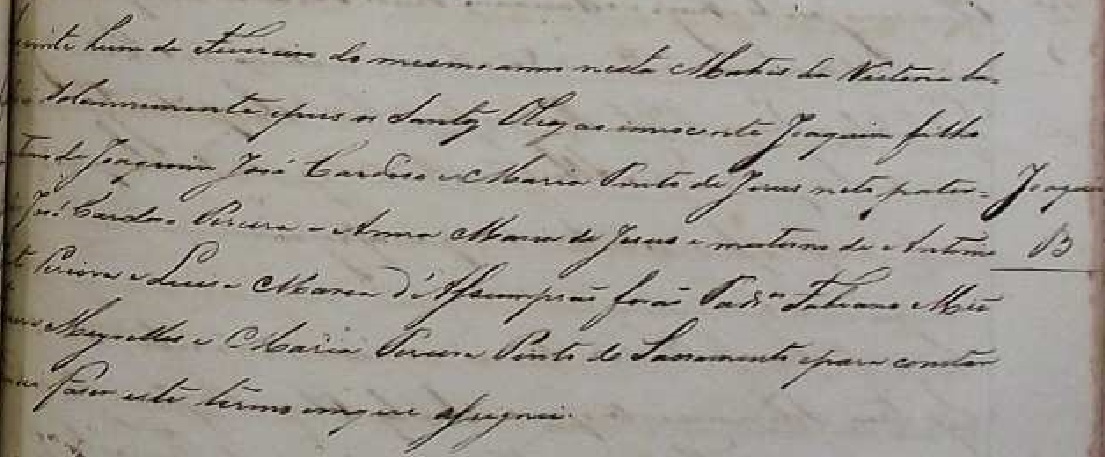 vinte hum de Fevereiro do mesmo anno nesta Matris da Victoria ba-
Solennemente e pus os Santos Oleos ao innocente Joaquim filho
de Joaquim José Cardoso e Maria Pinto de Jesus neto pater- Joaquim
José Cardoso Pereira e Anna Maria de Jesus e materno de Antonio B
Pereira e Luisa Maria d'Assumpção forão Padrⁿˢ Fabiano
Magalhes e Maria Pereira Pinto do Sacramento e para constar
faço este têrmo em que assignei.